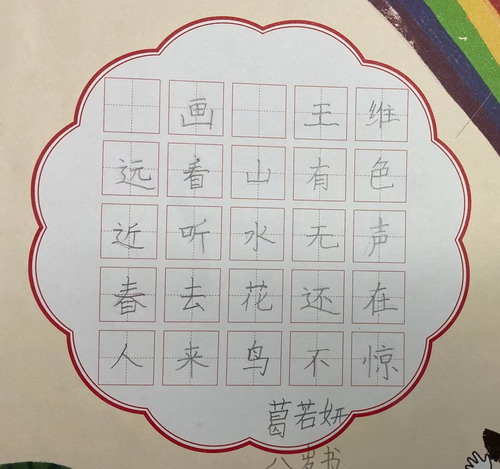 画 王维
远看山有色
近听水无声
春去花还在
人来鸟不惊
葛若妍
八岁书